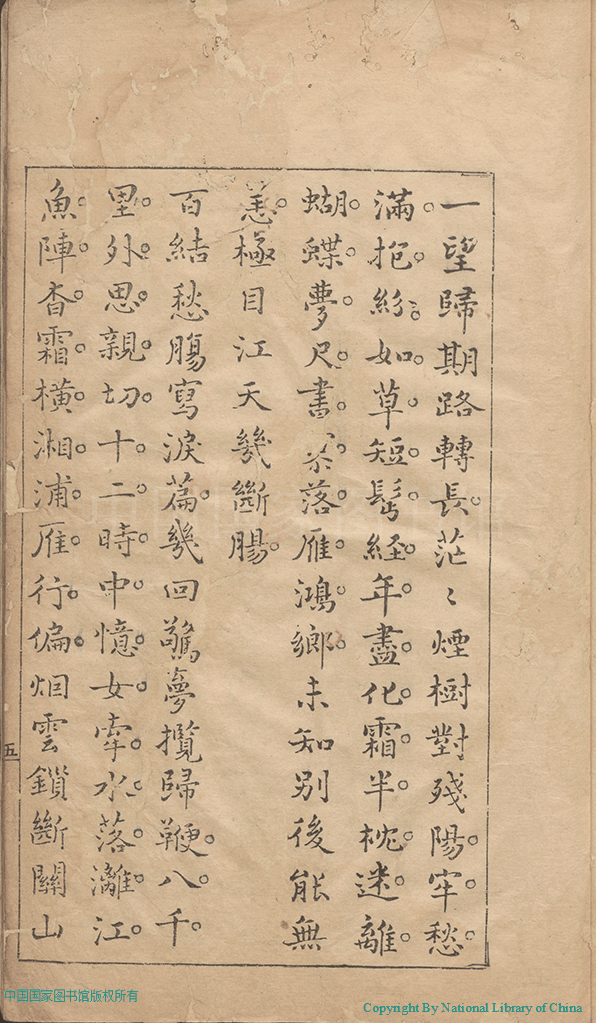 一望歸期路轉長。茫〻煙樹對殘陽。牢愁。
滿。抱。紛。如。草。短。髩。經。年。盡。化。霜。半。枕。迷。離。
蝴。蝶。夢。尺。書。落。雁。鴻。鄉。未知别後能無
恙。極目江天幾斷腸。
百結愁腸寫淚篇。幾回驚夢攬歸鞭。八。千。
里。外。思。親。切。十。二。時。中。憶。女。牽。水。落。灕。江。
魚。陣。杳。霜。橫。湘。浦。雁。行。偏。烟雲鎖斷關山
五
中国国家图书馆版权所有
Copyright By National Library of China